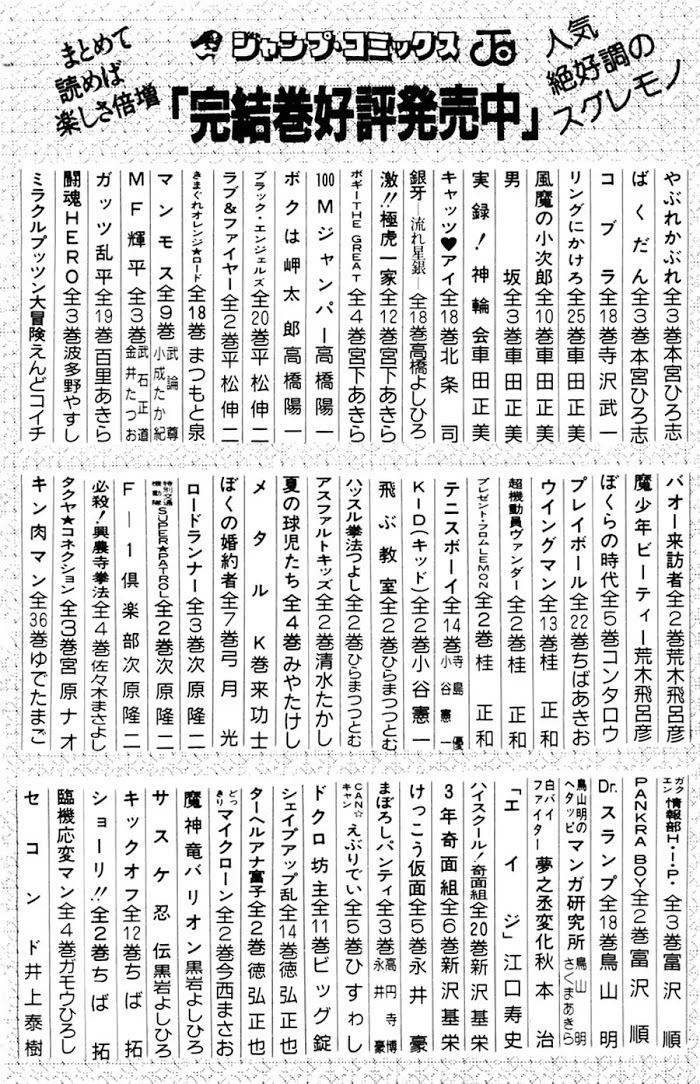 まとめて
読めば
楽しさ倍増
ジャンプ・コミックス
人気
絶好調の
スグレモノ
「完結巻好評発売中」
やぶれかぶれ全3巻本宮ひろ志
ばくだん全3巻本宮ひろ志
コブラ全18巻寺沢武一
リングにかけろ全25巻車田正美
風魔の小次郎全10巻車田正美
男坂全3巻車田正美
実録!神輪会車田正美
キャッツ♥アイ全18巻北条司
銀牙―流れ星銀―全18巻高橋よしひろ
激!!極虎一家全12巻宮下あきら
ボギーTHE GREAT全4巻宮下あきら
100Mジャンパー高橋陽一
ボクは岬太郎高橋陽一
ブラック・エンジェルズ全20巻平松伸二
ラブ&ファイヤー全2巻平松伸二
きまぐれオレンジ★ロード全18巻まつもと泉
マンモス全9巻武論尊 小成たか紀
MF輝平全3巻武石正道 金井たつお
ガッツ乱平全19巻百里あきら
闘魂HERO全3巻波多野やすし
ミラクルプッツン大冒険えんどコイチ
バオー来訪者全2巻荒木飛呂彦
魔少年ビーティー荒木飛呂彦
ぼくらの時代全5巻コンタロウ
プレイボール全22巻ちばあきお
ウイングマン全13巻桂正和
超機動員ヴァンダー全2巻桂正和
プレゼント・フロムLEMON全2巻桂正和
テニスボーイ全14巻寺島優 小谷憲一
KID(キッド)全2巻小谷憲一
飛ぶ教室全2巻ひらまつつとむ
ハッスル拳法つよし全2巻ひらまつつとむ
アスファルトキッズ全2巻清水たかし
夏の球児たち全4巻みやたけし
メタルK巻来功士
ぼくの婚約者全7巻弓月光
ロードランナー全3巻次原隆二
特別交通機動隊SUPER★PATROL全2巻次原隆二
F―1倶楽部次原隆二
必殺!興農寺拳法全4巻佐々木まさよし
タクヤ★コネクション全3巻宮原ナオ
キン肉マン全36巻ゆでたまご
ガクエン情報部H・I・P・全3巻富沢順
PANKRA BOY全2巻富沢順
Dr.スランプ全18巻鳥山明
鳥山明のヘタッピマンガ研究所鳥山明 さくまあきら
白バイファイター夢之丞変化秋本治
「エイジ」江口寿史
ハイスクール!奇面組全20巻新沢基栄
3年奇面組全6巻新沢基栄
けっこう仮面全5巻永井豪
まぼろしパンティ全3巻高円寺博 永井豪
CAN☆キャンえぶりでい全5巻ひすわし
ドクロ坊主全11巻ビッグ錠
シェイプアップ乱全14巻徳弘正也
ターヘルアナ富子全2巻徳弘正也
どっきりマイクローン全2巻今西まさお
魔神竜バリオン黒岩よしひろ
サスケ忍伝黒岩よしひろ
キックオフ全12巻ちば拓
ショーリ!!全2巻ちば拓
臨機応変マン全4巻ガモウひろし
セコンド井上泰樹